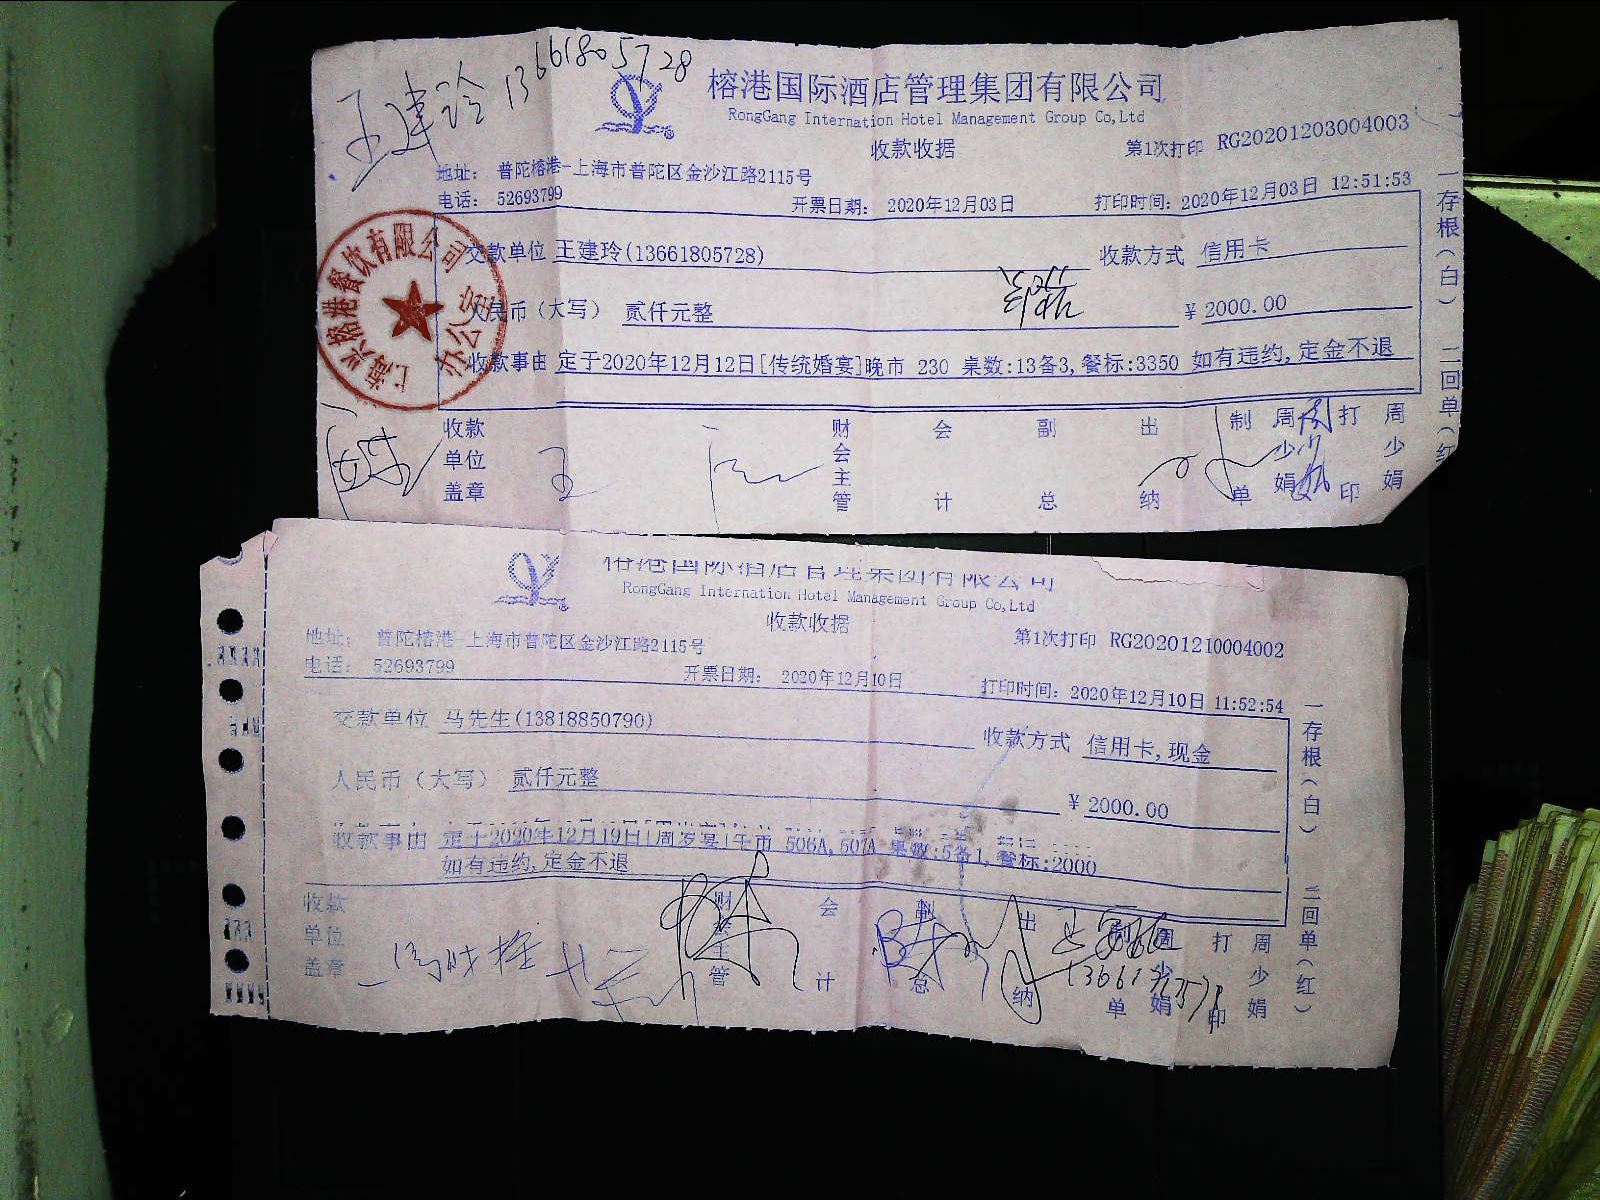 王建玲 13661805728
榕港国际酒店管理集团有限公司
RongGang Internation Hotel Management Group Co,Ltd
收款收据
第1次打印 RG20201203004003
地址: 普陀榕港-上海市普陀区金沙江路2115号
电话: 52693799
开票日期: 2020年12月03日
打印时间: 2020年12月03日 12:51:53
交款单位 王建玲(13661805728)
收款方式 信用卡
人民币（大写） 贰仟元整
¥ 2000.00
收款事由 定于2020年12月12日[传统婚宴]晚市 230 桌数:13备3,餐标:3350 如有违约,定金不退
收款单位盖章
财会主管
会计
副总
出纳
制单
周少娟
打印
周少娟
一存根（白） 二回单（红
餐饮有限公司
办公室
榕港国际酒店管理集团有限公司
RongGang Internation Hotel Management Group Co,Ltd
收款收据
第1次打印 RG20201210004002
地址: 普陀榕港-上海市普陀区金沙江路2115号
电话: 52693799
开票日期: 2020年12月10日
打印时间: 2020年12月10日 11:52:54
交款单位 马先生(13818850790)
收款方式 信用卡,现金
人民币（大写） 贰仟元整
¥ 2000.00
收款事由 定于2020年12月19日[周岁宴]午市 506A,507A 桌数:5备1,餐标:2000
如有违约,定金不退
收款单位盖章
财会主管
会计
副总
出纳
制单
周少娟
打印
周少娟
一存根（白） 二回单（红）